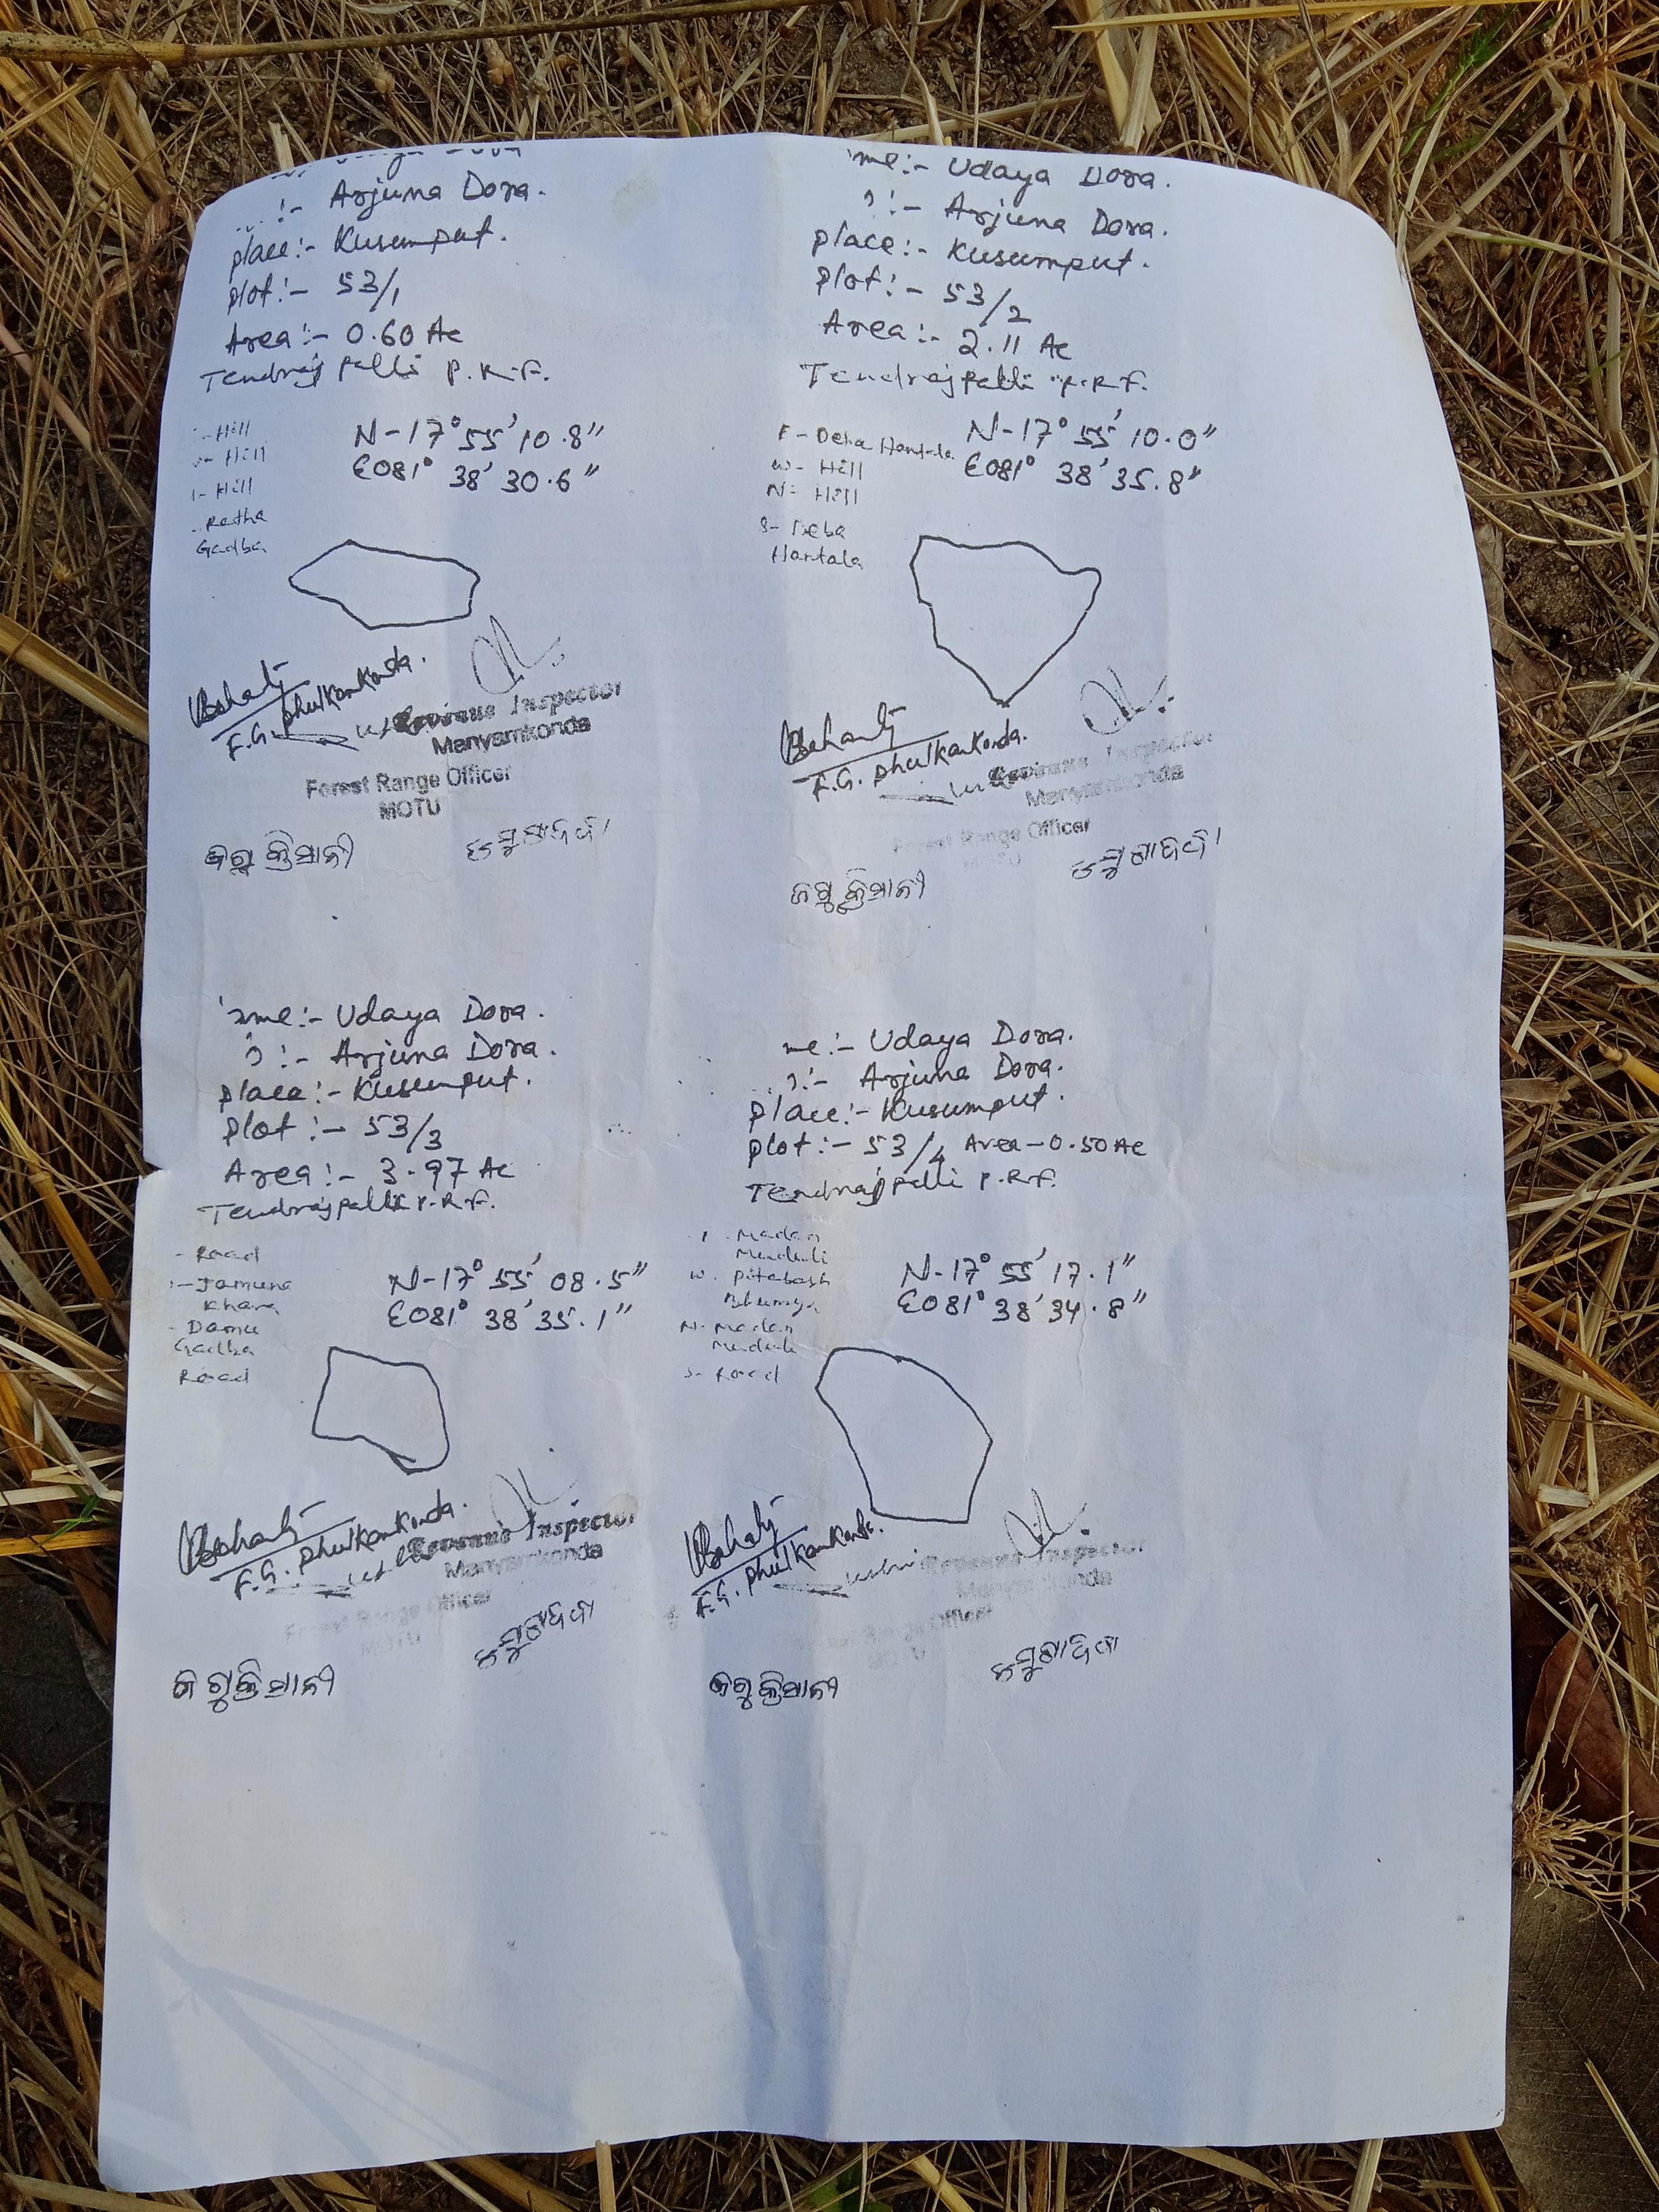 Arjuna Dora.
place:- Kusumput.
plot:- 53/1
Area:- 0.60 Ac
Tendrajpalli P.R.F.
- Hill
- Hill
- Hill
- Radha
Gadba
N-17° 55' 10.8"
E081° 38' 30.6"
F.G. Phulkankonda.
Revenue Inspector
Manyamkonda
Forest Range Officer
MOTU
me:- Udaya Dora.
:- Arjuna Dora.
place:- Kusumput.
plot:- 53/2
Area:- 2.11 Ac
Tendrajpalli P.R.F.
E- Deba Hantala
W- Hill
N- Hill
S- Deba
Hantala
N-17° 55' 10.0"
E081° 38' 35.8"
F.G. Phulkankonda.
Revenue Inspector
Manyamkonda
Forest Range Officer
MOTU
ame:- Udaya Dora.
:- Arjuna Dora.
place:- Kusumput.
plot:- 53/3
Area:- 3.97 Ac
Tendrajpalli P.R.F.
- Road
- Jamuna
Khara
- Damu
Gadba
Road
N-17° 55' 08.5"
E081° 38' 35.1"
F.G. Phulkankonda.
Revenue Inspector
Manyamkonda
Forest Range Officer
MOTU
me:- Udaya Dora.
:- Arjuna Dora.
place:- Kusumput.
plot:- 53/4 Area-0.50 Ac
Tendrajpalli P.R.F.
- Madan
Muduli
W. Pitabash
Bhumya
N- Madan
Muduli
S- Road
N-17° 55' 17.1"
E081° 38' 34.8"
F.G. Phulkankonda.
Revenue Inspector
Manyamkonda
Forest Range Officer
MOTU